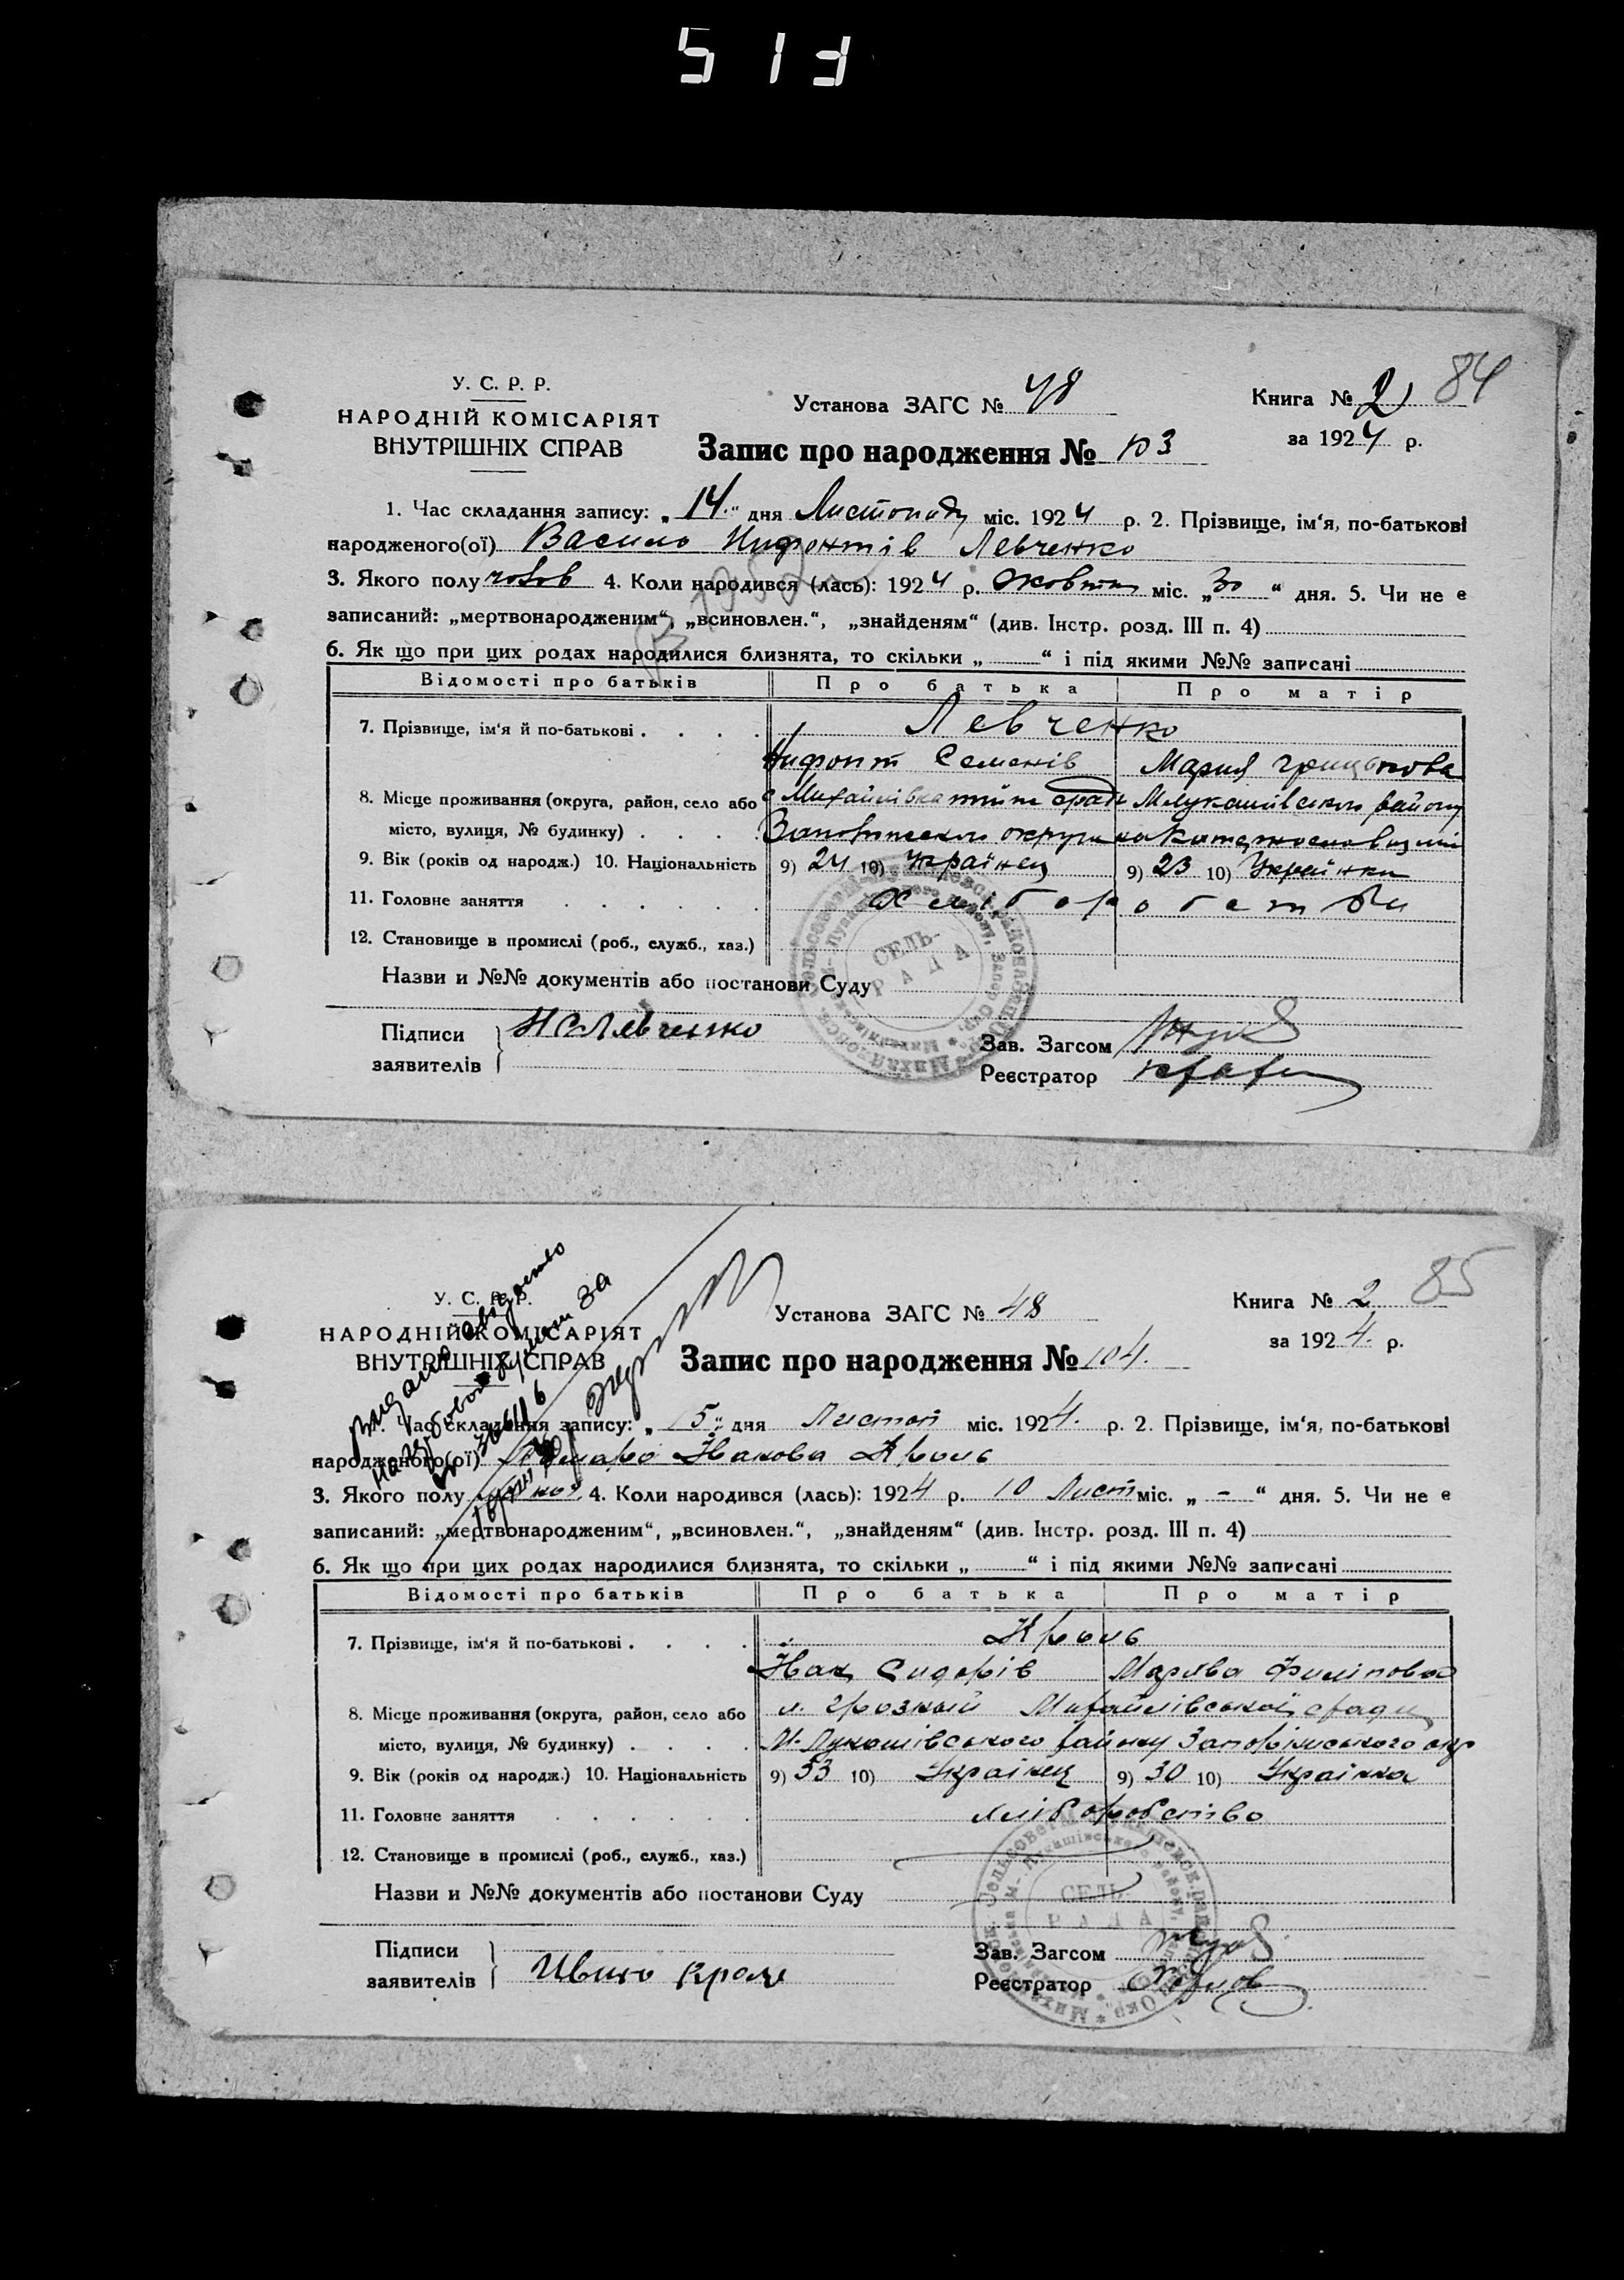 513
84
У. С. Р. Р.
НАРОДНІЙ КОМІСАРІЯТ
ВНУТРІШНІХ СПРАВ
Установа ЗАГС № 48
Книга № 2
за 1924 р.
Запис про народження № 103
1. Час складання запису: „14" дня Листопаду міс. 1924 р. 2. Прізвище, ім‘я, по-батькові
народженого(ої) Василь Нифонтів Левченко
3. Якого полу чолов 4. Коли народився (лась): 1924 р. Жовтн міс. „30“ дня. 5. Чи не е
записаний: „мертвонародженим“, „всиновлен.“, „знайденям“ (див. Інстр. розд. III п. 4)
6. Як що при цих родах народилися близнята, то скільки „ “ і під якими №№ записані
Відомості про батьків Про батька Про матір
7. Прізвище, ім‘я й по-батькові . . . . Левченко
Нифонт Семенів Мария Грицькова
8. Місце проживання (округа, район, село або с Михайлівка Млукашівського району
місто, вулиця, № будинку) . . . .
9. Вік (років од народж.) 10. Національність 9) 24 10) Українец 9) 23 10) Українка
11. Головне заняття . . . . . . Хліборобство
12. Становище в промислі (роб., служб., хаз.)
Назви и №№ документів або постанови Суду
СЕЛЬ-
РАДА
Підписи
заявителів
Н С Левченко
Зав. Загсом
Реєстратор
85
У. С. Р. Р.
НАРОДНІЙ КОМІСАРІЯТ
ВНУТРІШНІХ СПРАВ
Установа ЗАГС № 48
Книга № 2
за 1924. р.
Запис про народження № 104.
1. Час складання запису: „15" дня Листоп міс. 1924. р. 2. Прізвище, ім‘я, по-батькові
народженого(ої) Іванова Кроль
3. Якого полу 4. Коли народився (лась): 1924 р. 10 Лист міс. „ - “ дня. 5. Чи не е
записаний: „мертвонародженим“, „всиновлен.“, „знайденям“ (див. Інстр. розд. III п. 4)
6. Як що при цих родах народилися близнята, то скільки „ “ і під якими №№ записані
Відомості про батьків Про батька Про матір
7. Прізвище, ім‘я й по-батькові . . . . Кроль
Іван Сидорів Марява Филіпова
8. Місце проживання (округа, район, село або Грозный Михайлівської сради
місто, вулиця, № будинку) . . . . М-Лукашівського району Запоріжського окр
9. Вік (років од народж.) 10. Національність 9) 33 10) Українец 9) 30 10) Українка
11. Головне заняття . . . . . хліборобство
12. Становище в промислі (роб., служб., хаз.)
Назви и №№ документів або постанови Суду
СЕЛЬ-
РАДА
Підписи
заявителів
Зав. Загсом
Реєстратор